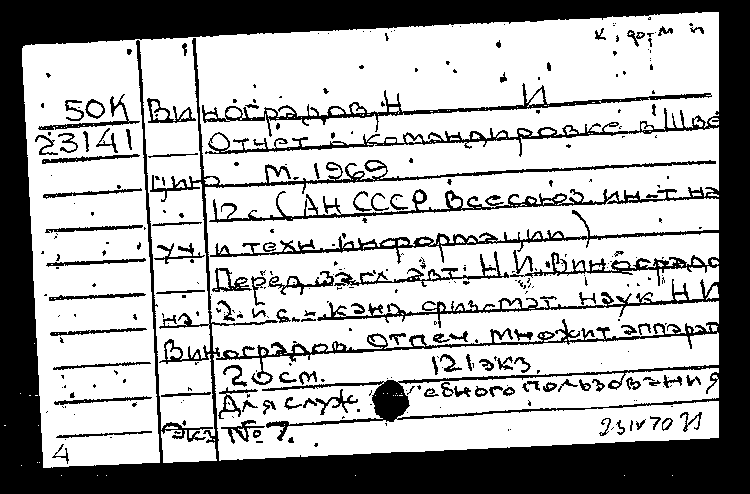 50К Виноградов, Н И
23141 Отчет о командировке в Шве
цию М., 1969
12 с. (АН СССР. Всесоюз. ин-т на
уч. и техн. информации)
Перед загл. авт.: Н.И. Виноградо
на 2-й с. - канд. физ-мат. наук Н И
Виноградов. Отпеч. множит. аппарат
20 см. 121 экз.
Для служебного пользования
Экз № 7.
4